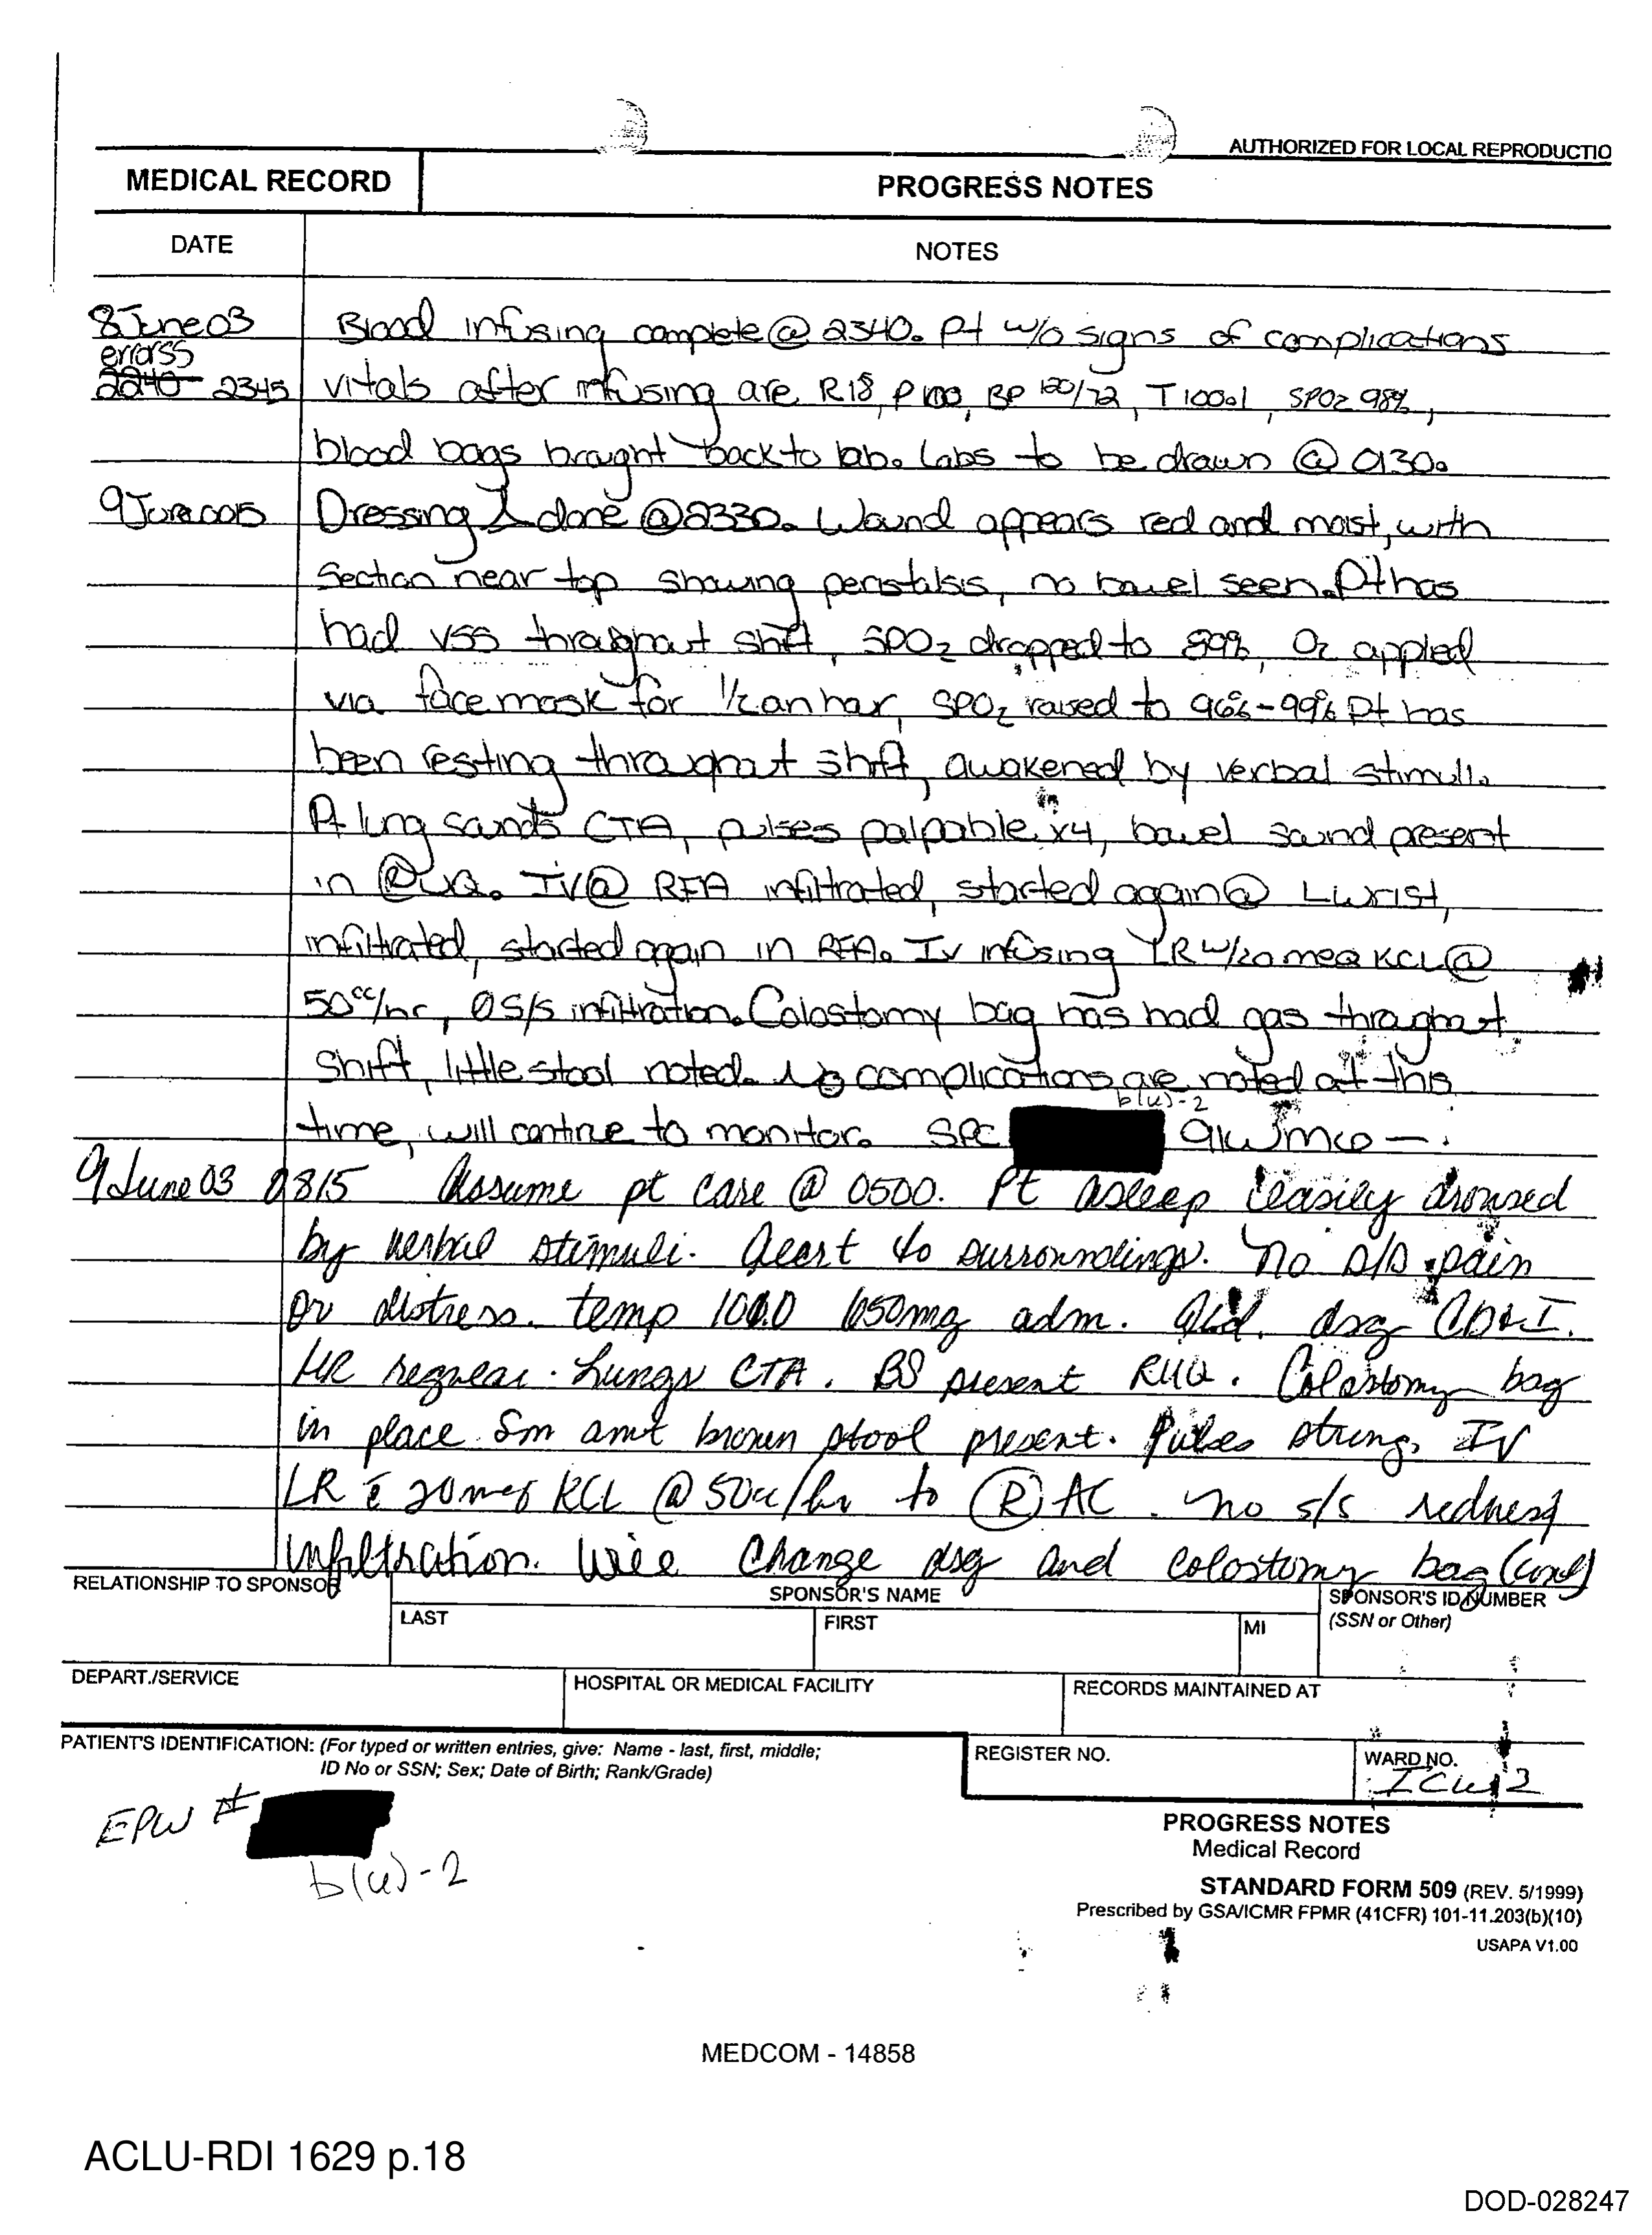 AUTHORIZED FOR LOCAL REPRODUCTIO
MEDICAL RECORD
PROGRESS NOTES
DATE
NOTES
8June03 Blood infusing complete @ 2340. Pt w/o signs of complications
error SS
2240 2345 vitals after infusing are R18, P100, BP 120/72, T100.1, SPO2 98%,
blood bags brought back to lab. Labs to be drawn @ 0130.
9June0015 Dressing Δ done @2330. Wound appears red and moist, with
section near top showing peristalsis, no bowel seen. Pt has
had VSS throughout shift, SPO2 dropped to 89%, O2 applied
via facemask for 1/2 an hour, SPO2 raised to 96%-99% Pt has
been resting throughout shift, awakened by verbal stimuli.
Pt lung sounds CTA, pulses palpable x4, bowel sound present
in RUQ. IV@ RFA infiltrated, started again@ L wrist,
infiltrated, started again in RFA. IV infusing LR w/20 meq KCL @
50cc/hr, Ø S/S infiltration. Colostomy bag has had gas throughout
shift, little stool noted. No complications are noted at this
b(6)-2
time, will continue to monitor. SPC 91WM6 —.
9 June 03 0815 Assume pt care @ 0500. Pt asleep easily aroused
by verbal stimuli. Alert to surroundings. No s/s pain
or distress. temp 100.0 650mg adm. dsg CD&I.
HR regular. Lungs CTA. BS present RUQ. Colostomy bag
in place Sm amt brown stool present. Pulses strong. IV
LR c̄ 20meq KCL @ 50cc/hr to R AC. no s/s redness
infiltration. Will change dsg and colostomy bag (cont)
RELATIONSHIP TO SPONSOR
SPONSOR'S NAME
SPONSOR'S ID NUMBER
(SSN or Other)
LAST
FIRST
MI
DEPART./SERVICE
HOSPITAL OR MEDICAL FACILITY
RECORDS MAINTAINED AT
PATIENT'S IDENTIFICATION: (For typed or written entries, give: Name - last, first, middle;
ID No or SSN; Sex; Date of Birth; Rank/Grade)
REGISTER NO.
WARD NO.
ICU 2
EPW #
b(6)-2
PROGRESS NOTES
Medical Record
STANDARD FORM 509 (REV. 5/1999)
Prescribed by GSA/ICMR FPMR (41CFR) 101-11.203(b)(10)
USAPA V1.00
MEDCOM - 14858
ACLU-RDI 1629 p.18
DOD-028247